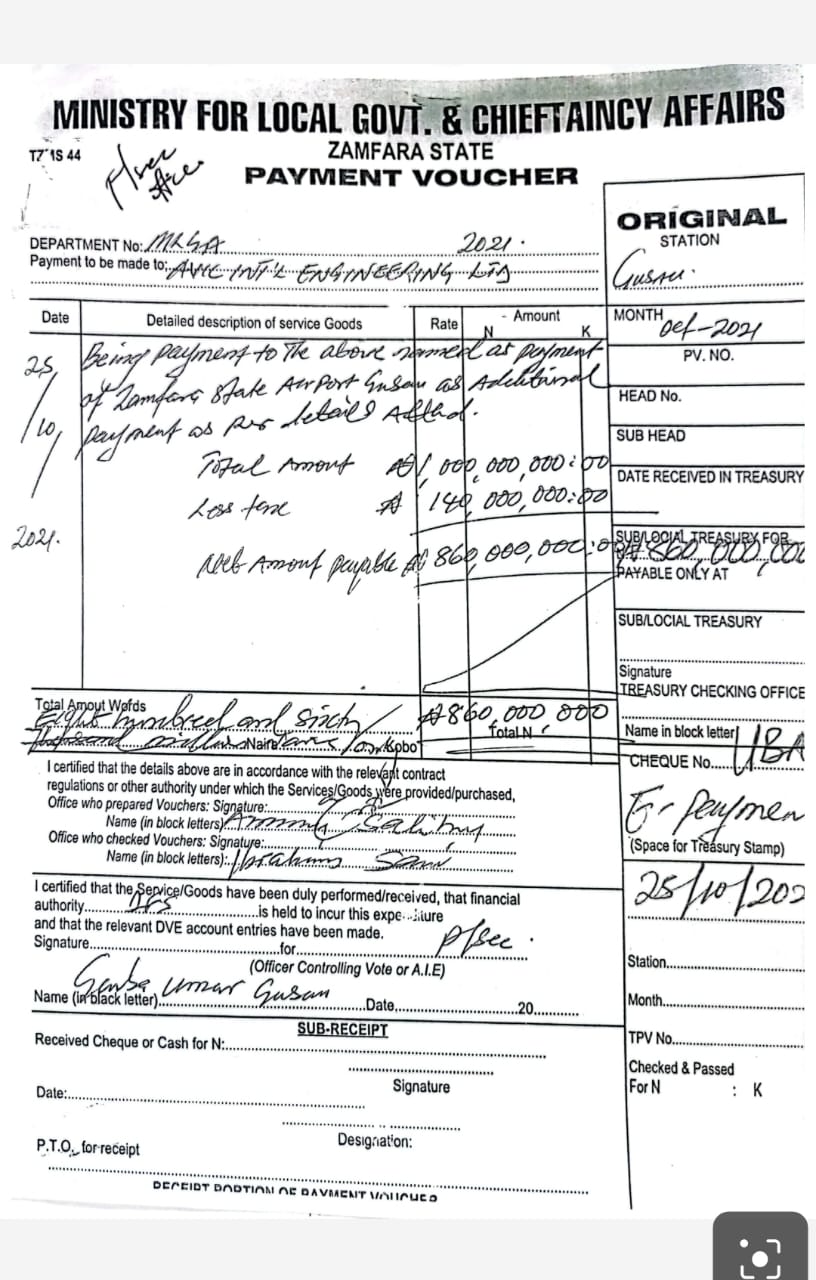 MINISTRY FOR LOCAL GOVT. & CHIEFTAINCY AFFAIRS
ZAMFARA STATE
PAYMENT VOUCHER
P/sec
ORIGINAL
STATION
Gusau
DEPARTMENT No: MLGA 2021.
Payment to be made to: AVIC INT'L ENGINEERING LTD
Date
Detailed description of service Goods
Rate
Amount
N K
MONTH Oct-2021
PV. NO.
HEAD No.
SUB HEAD
DATE RECEIVED IN TREASURY
SUB/LOCIAL TREASURY FOR
₦860,000,000
PAYABLE ONLY AT
SUB/LOCIAL TREASURY
Signature
TREASURY CHECKING OFFICE
Name in block letter
UBA
CHEQUE No.
E-Paymen
(Space for Treasury Stamp)
25/10/202
Station
Month
TPV No.
Checked & Passed
For N : K
25/10/2021.
Being payment to the above named as payment
of Zamfara State Airport Gusau as Additional
payment as per details Attchd.
Total Amount ₦1,000,000,000:00
Less ₦ 140,000,000:00
Net Amount payable ₦ 860,000,000:0
Total Amout Wofds
Eight hundred and sixty
₦860,000,000
Total N
Naira Kobo
I certified that the details above are in accordance with the relevant contract
regulations or other authority under which the Services/Goods were provided/purchased,
Office who prepared Vouchers: Signature:
Name (in block letters)
Office who checked Vouchers: Signature:
Name (in block letters): Ibrahim Sani
I certified that the Service/Goods have been duly performed/received, that financial
authority is held to incur this expe
and that the relevant DVE account entries have been made.
Signature for P/sec.
(Officer Controlling Vote or A.I.E)
Name (in black letter) Umar Gusau Date 20
SUB-RECEIPT
Received Cheque or Cash for N:
Signature
Date:
Designation:
P.T.O, for receipt
RECEIPT PORTION OF PAYMENT VOUCHER